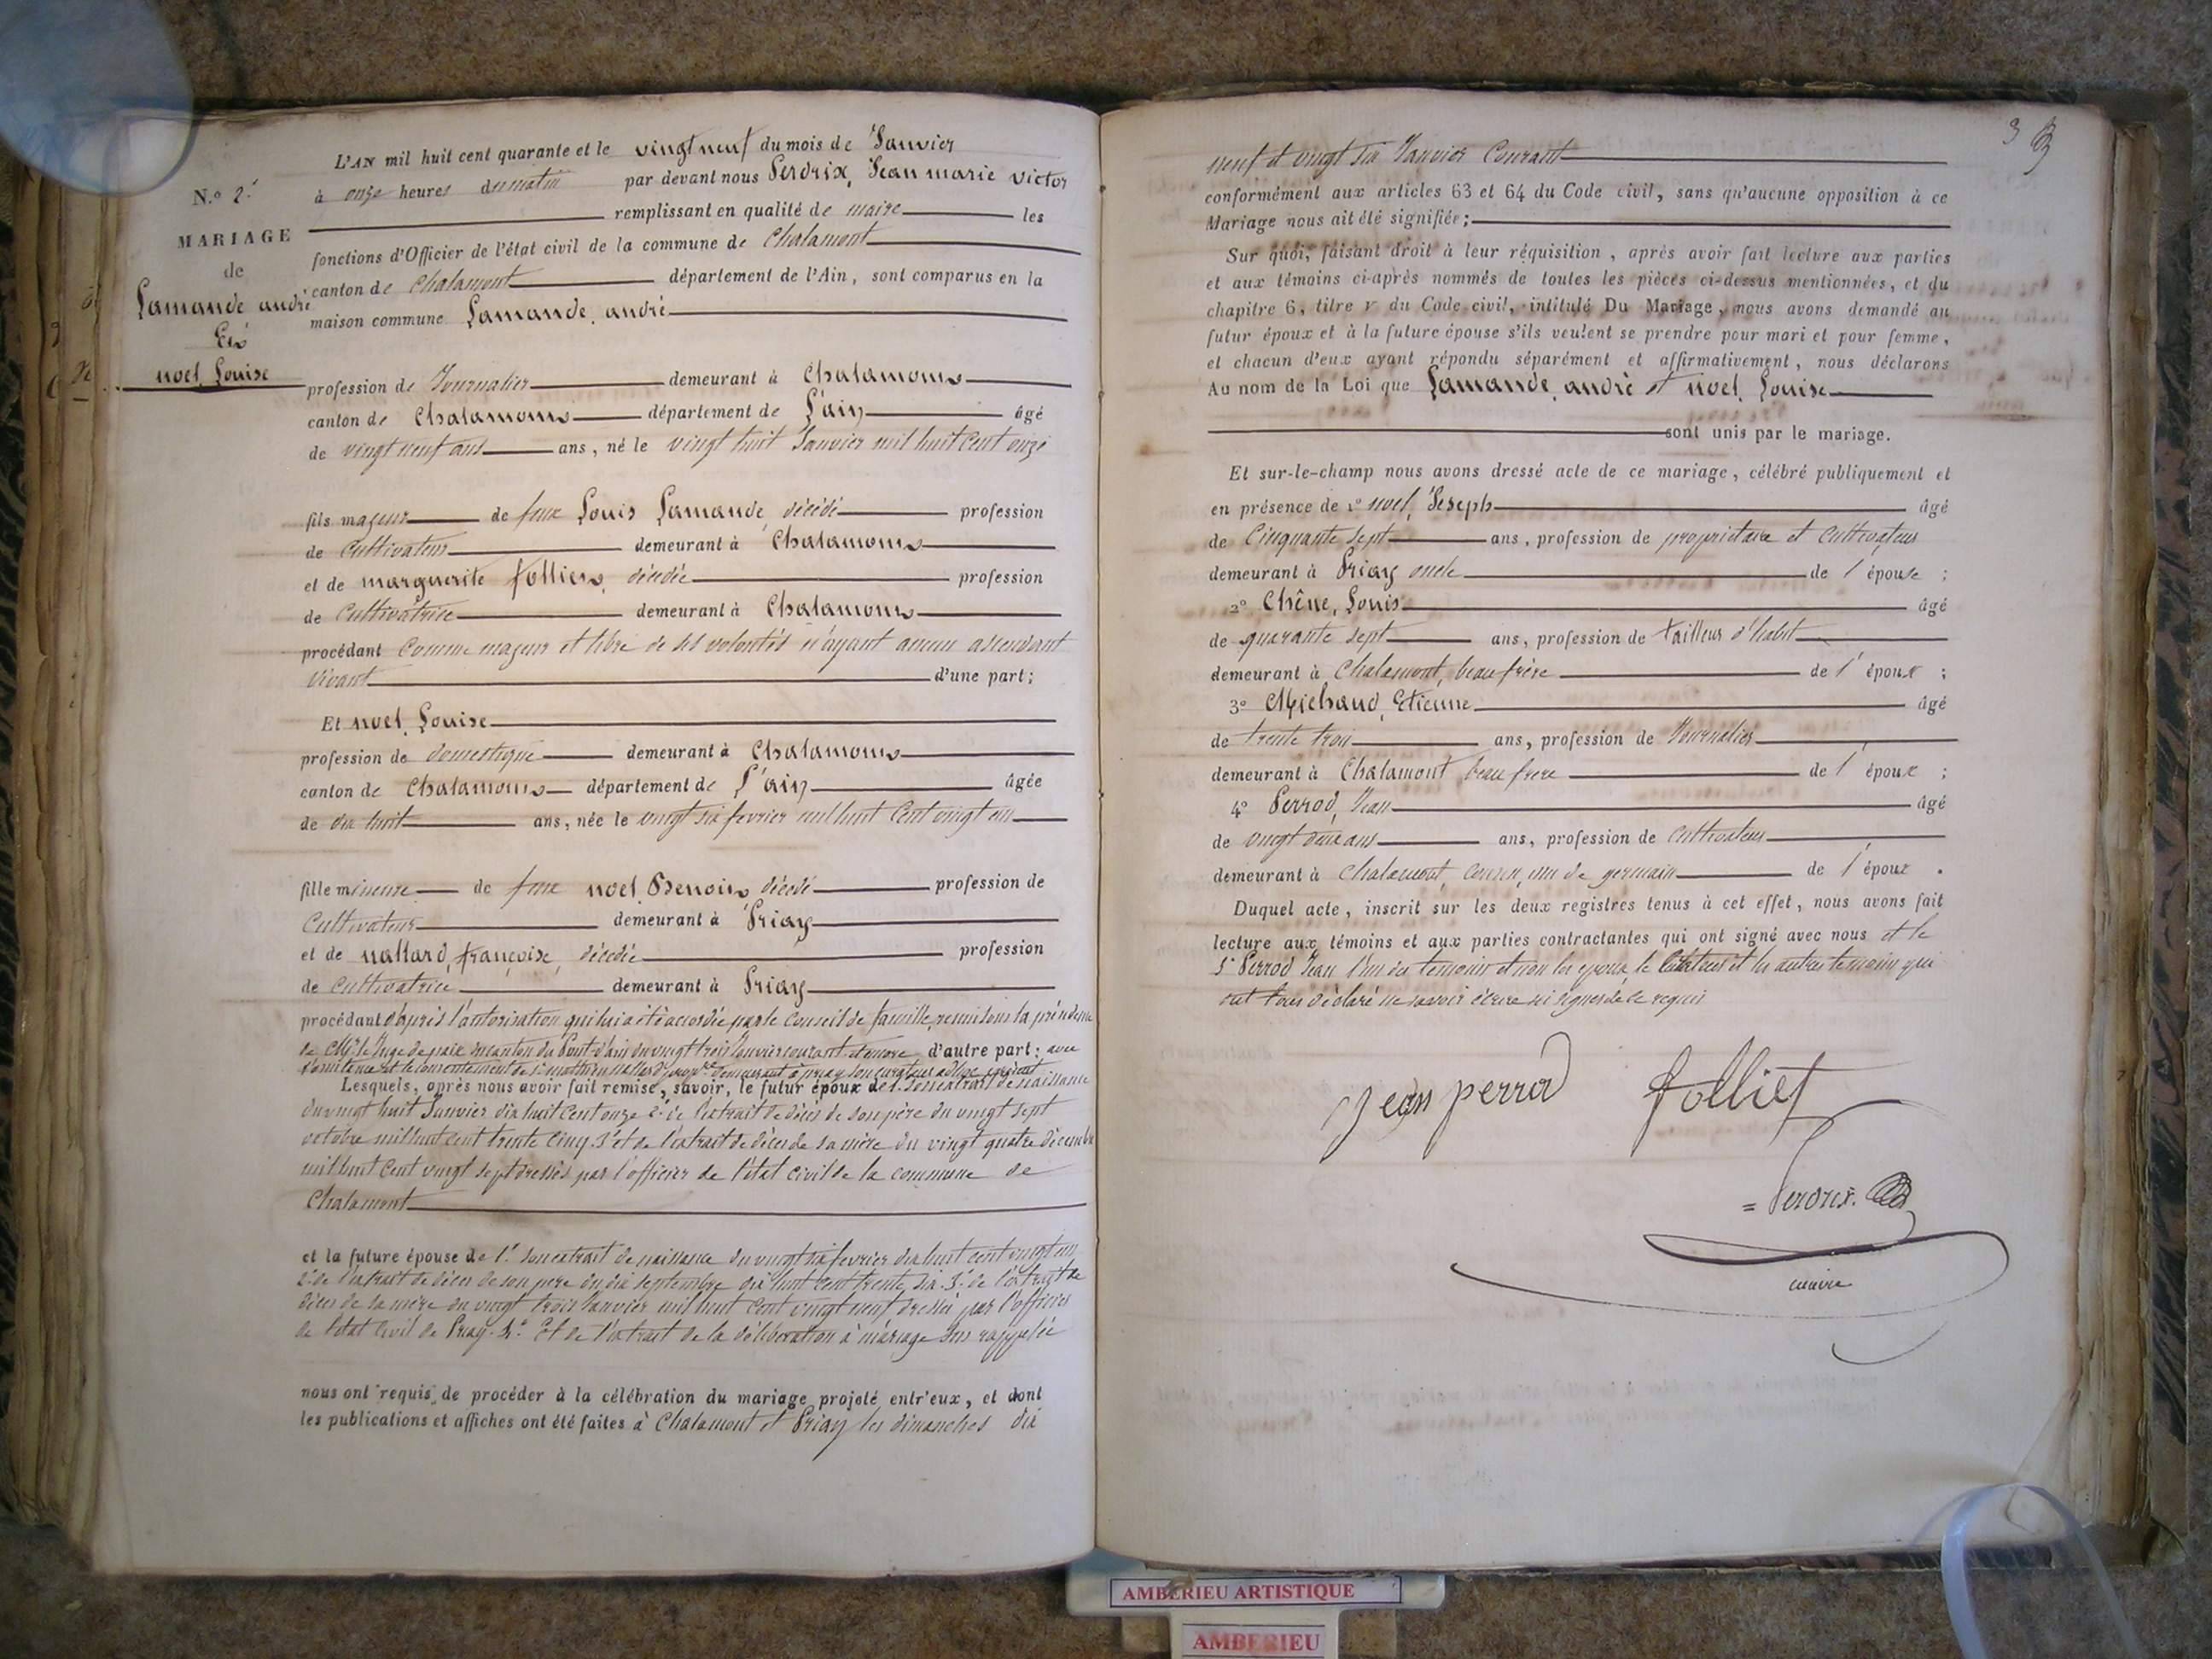 N.o 2.
MARIAGE
de
Lamande andré
Et
noel, Louise
L'AN mil huit cent quarante et le vingt neuf du mois de Janvier
à onze heures du matin par devant nous Perdrix, Jean marie victor
remplissant en qualité de maire les
fonctions d'Officier de l'état civil de la commune de Chalamont
canton de Chalamont département de l'Ain, sont comparus en la
maison commune Lamande, andré
profession de Journalier demeurant à Chalamont
canton de Chalamont département de L'ain âgé
de vingt neuf ans ans, né le vingt huit Janvier mil huit Cent onze
fils majeur de feux Louis Lamande, décédé profession
de Cultivateur demeurant à Chalamont
et de marguerite folliet, décédée profession
de Cultivatrice demeurant à Chalamont
procédant Comme majeur et libre de ses volontés n'ayant aucun ascendant
vivant d'une part;
Et noel, Louise
profession de domestique demeurant à Chalamont
canton de Chalamont département de L'ain âgée
de dix huit ans, née le vingt six fevrier mil huit Cent vingt un
fille mineure de feux noel, Benoit décédé profession de
Cultivateur demeurant à Priay
et de nallard, françoise, décédée profession
de Cultivatrice demeurant à Priay
procédant d'après l'autorisation qui lui a été accordée par le Conseil de famille, reuni sous la présidence
de Mr. le Juge de paix du canton du Pont-d'ain du vingt trois Janvier courant d'autre part; avec
Lesquels, après nous avoir fait remise, savoir, le futur époux de 1.o son extrait de naissance
du vingt huit Janvier dix huit Cent onze 2.o de l'extrait de décès de son père du vingt sept
octobre mil huit cent trente Cinq. 3.o et de l'extrait de décès de sa mère du vingt quatre décembre
mil huit Cent vingt sept dressés par l'officier de l'état civil de la commune de
Chalamont
et la future épouse de 1.o son extrait de naissance du vingt six fevrier dix huit cent vingt un
2.o de l'extrait de décès de son père du dix septembre dix huit Cent trente six. 3.o de l'extrait de
décès de sa mère du vingt trois Janvier mil huit Cent vingt neuf dressés par l'officier
de l'état civil de Priay. 4.o Et de l'extrait de la délibération à mariage sus rappelée
nous ont requis de procéder à la célébration du mariage projeté entr'eux, et dont
les publications et affiches ont été faites à Chalamont et Priay les dimanches dix
3
neuf et vingt six Janvier Courant
conformément aux articles 63 et 64 du Code civil, sans qu'aucune opposition à ce
Mariage nous ait été signifiée;
Sur quoi, faisant droit à leur réquisition, après avoir fait lecture aux parties
et aux témoins ci-après nommés de toutes les pièces ci-dessus mentionnées, et du
chapitre 6, titre V du Code civil, intitulé Du Mariage, nous avons demandé au
futur époux et à la future épouse s'ils veulent se prendre pour mari et pour femme,
et chacun d'eux ayant répondu séparément et affirmativement, nous déclarons
Au nom de la Loi que Lamande, andré et noel, Louise
sont unis par le mariage.
Et sur-le-champ nous avons dressé acte de ce mariage, célébré publiquement et
en présence de 1o noel, Joseph âgé
de Cinquante sept ans, profession de propriétaire et Cultivateur
demeurant à Priay oncle de l'épouse;
2o Chêne, Louis âgé
de quarante sept ans, profession de tailleur d'habit
demeurant à Chalamont, beau frère de l'époux;
3o Michaud, Etienne âgé
de trente trois ans, profession de Journalier
demeurant à Chalamont beau frere de l'époux;
4o Perrod, Jean âgé
de vingt deux ans ans, profession de Cultivateur
demeurant à Chalamont, cousin, issu de germain de l'époux.
Duquel acte, inscrit sur les deux registres tenus à cet effet, nous avons fait
lecture aux témoins et aux parties contractantes qui ont signé avec nous et le
Sr Perrod Jean l'un des temoins et non les époux, le curateur et les autres temoins qui
ont tous déclaré ne savoir écrire ni signer de ce requis
Jean perrod folliet
Perdrix.
maire
AMBERIEU ARTISTIQUE
AMBERIEU